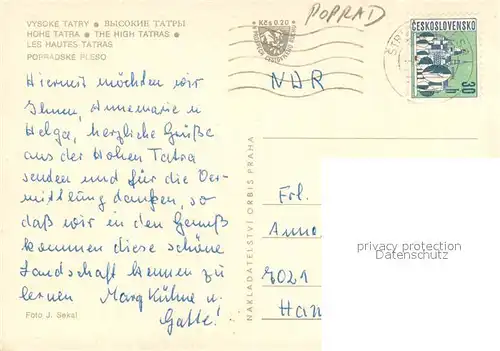 VYSOKÉ TATRY • ВЫСОКИЕ ТАТРЫ
HOHE TATRA • THE HIGH TATRAS •
LES HAUTES TATRAS
POPRADSKÉ PLESO
Kčs 0.20
POPRAD
ČESKOSLOVENSKO
NDR
Hiermit möchten wir
Ihnen, Annemarie u
Helga, herzliche Grüße
aus der Hohen Tatra
senden und für die Ver-
mittlung danken, so
daß wir in den Genuß
kommen diese schöne
Landschaft kennen zu
lernen Marg Kühne u.
Gatte!
Foto J. Sekal
NAKLADATELSTVÍ ORBIS PRAHA
Frl.
Anne
Han
privacy protection
Datenschutz